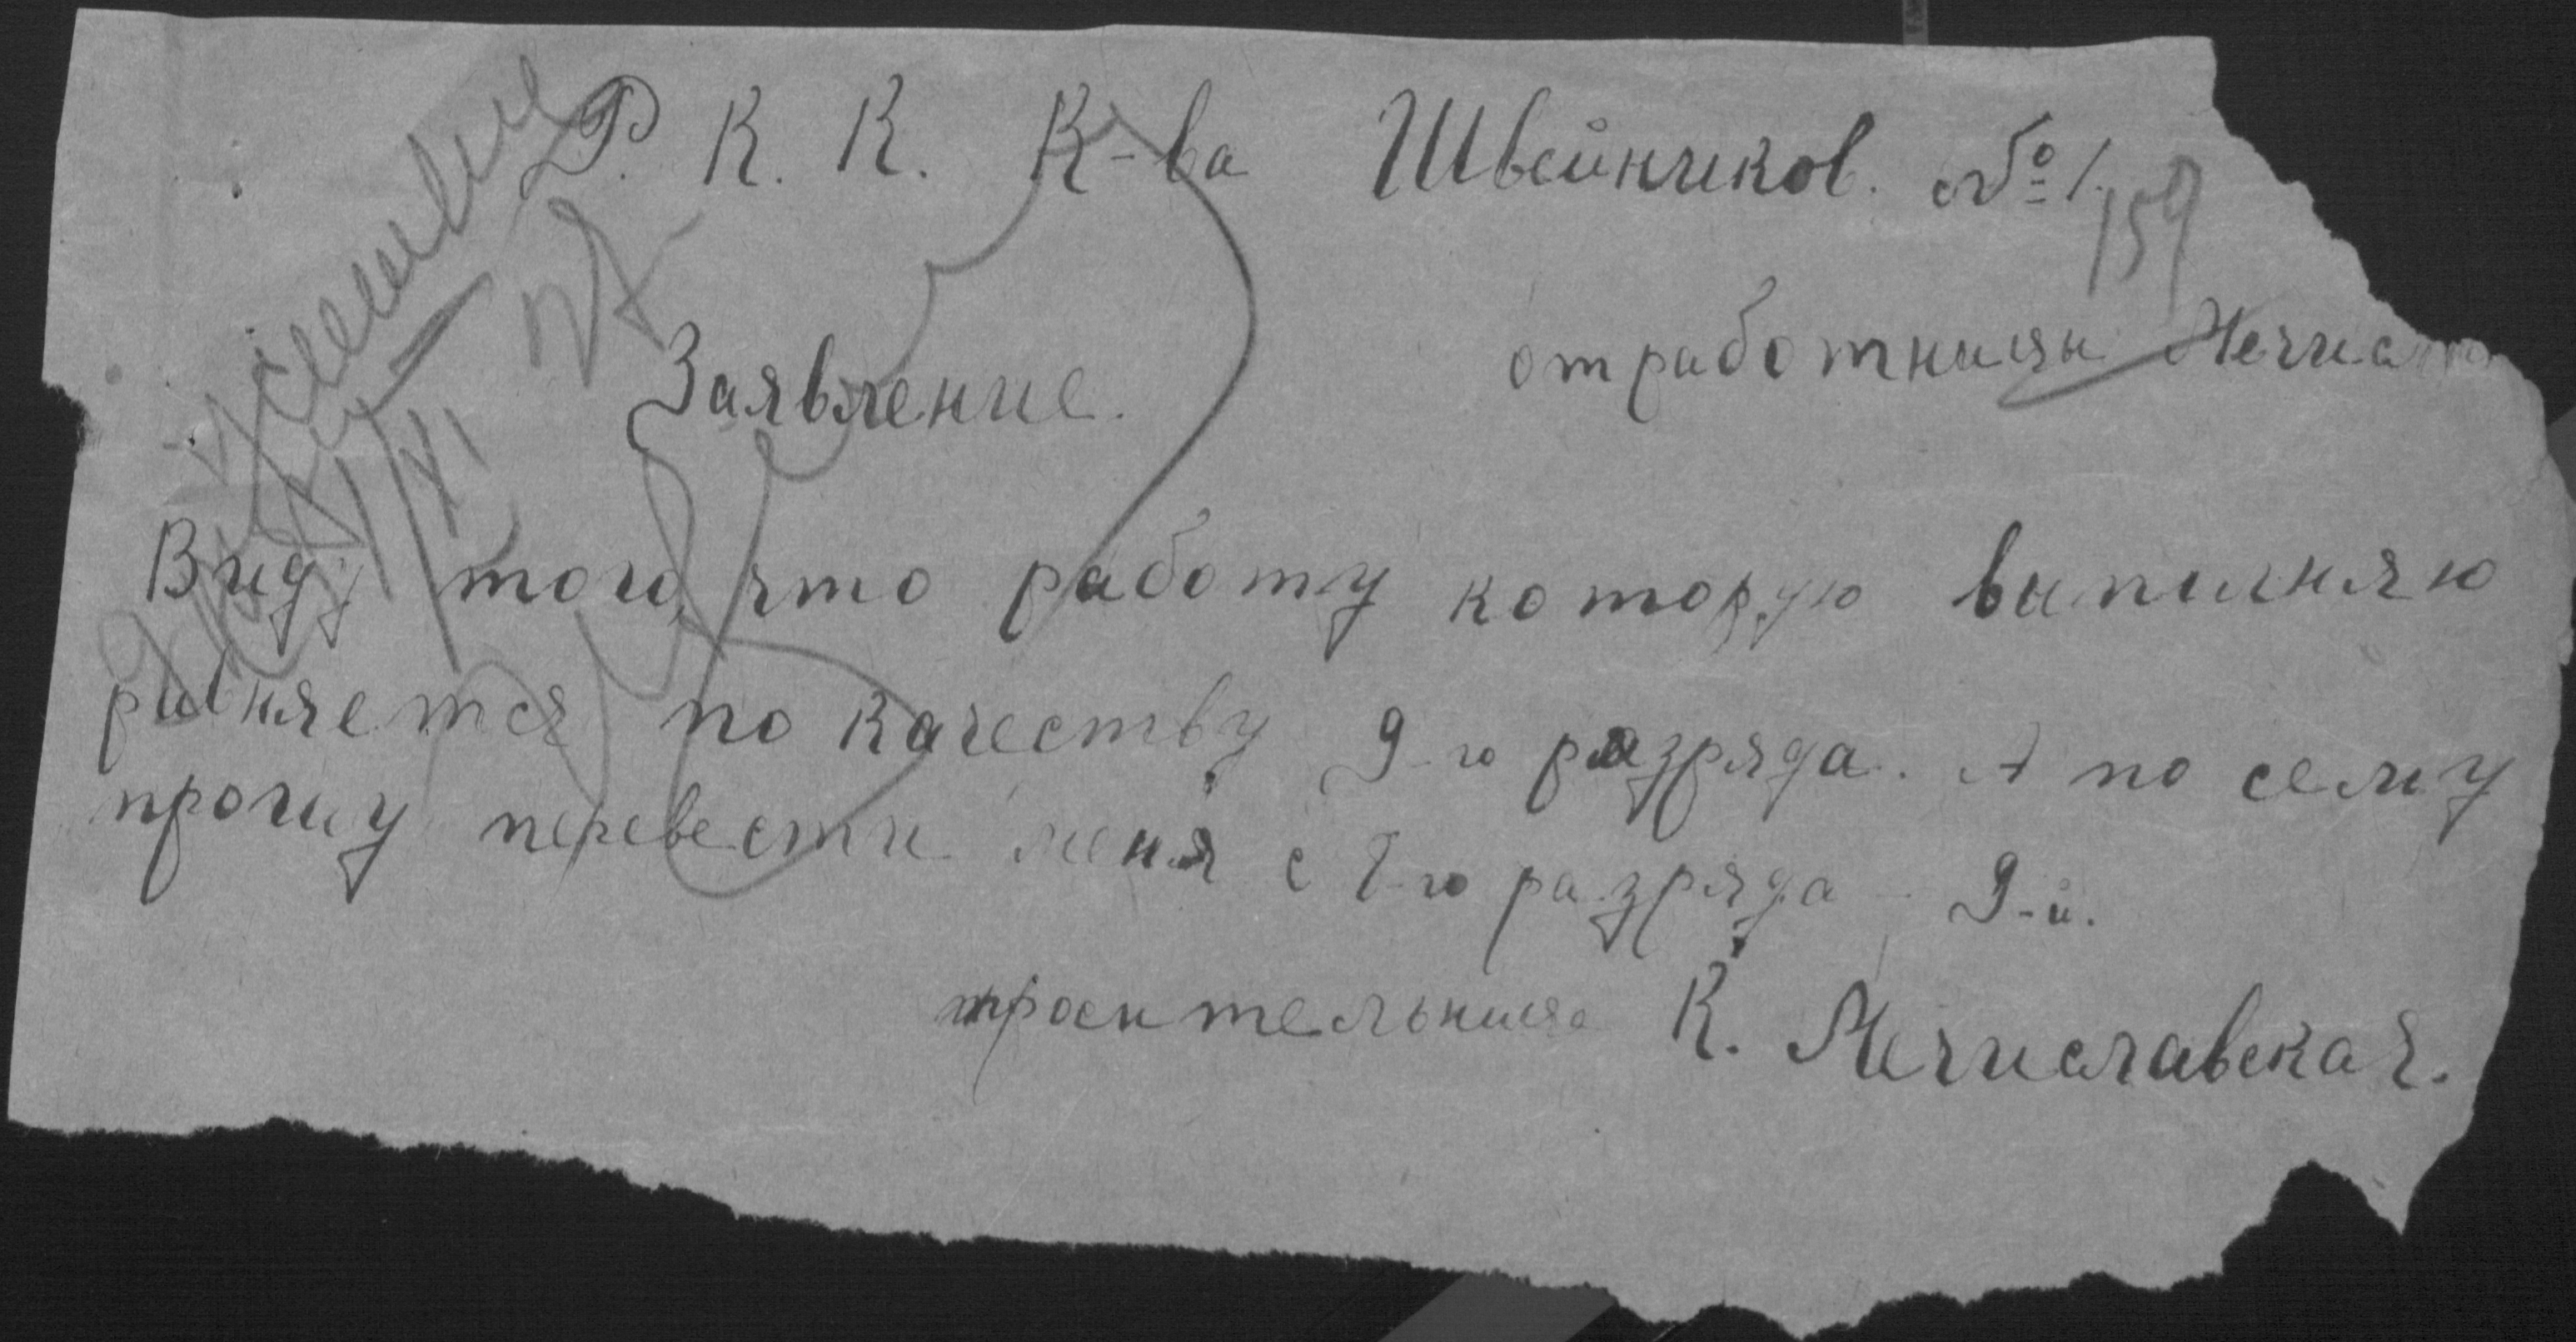 Р. К. К. К-ва Швейников. № 1.
159
от работницы Мечис
Заявление.
Виду того, что работу которую выполняю
равняется по качеству 9-го разряда. А по сему
прошу перевести меня с 8-го разряда - 9-й.
просительница К. Мечиславская.